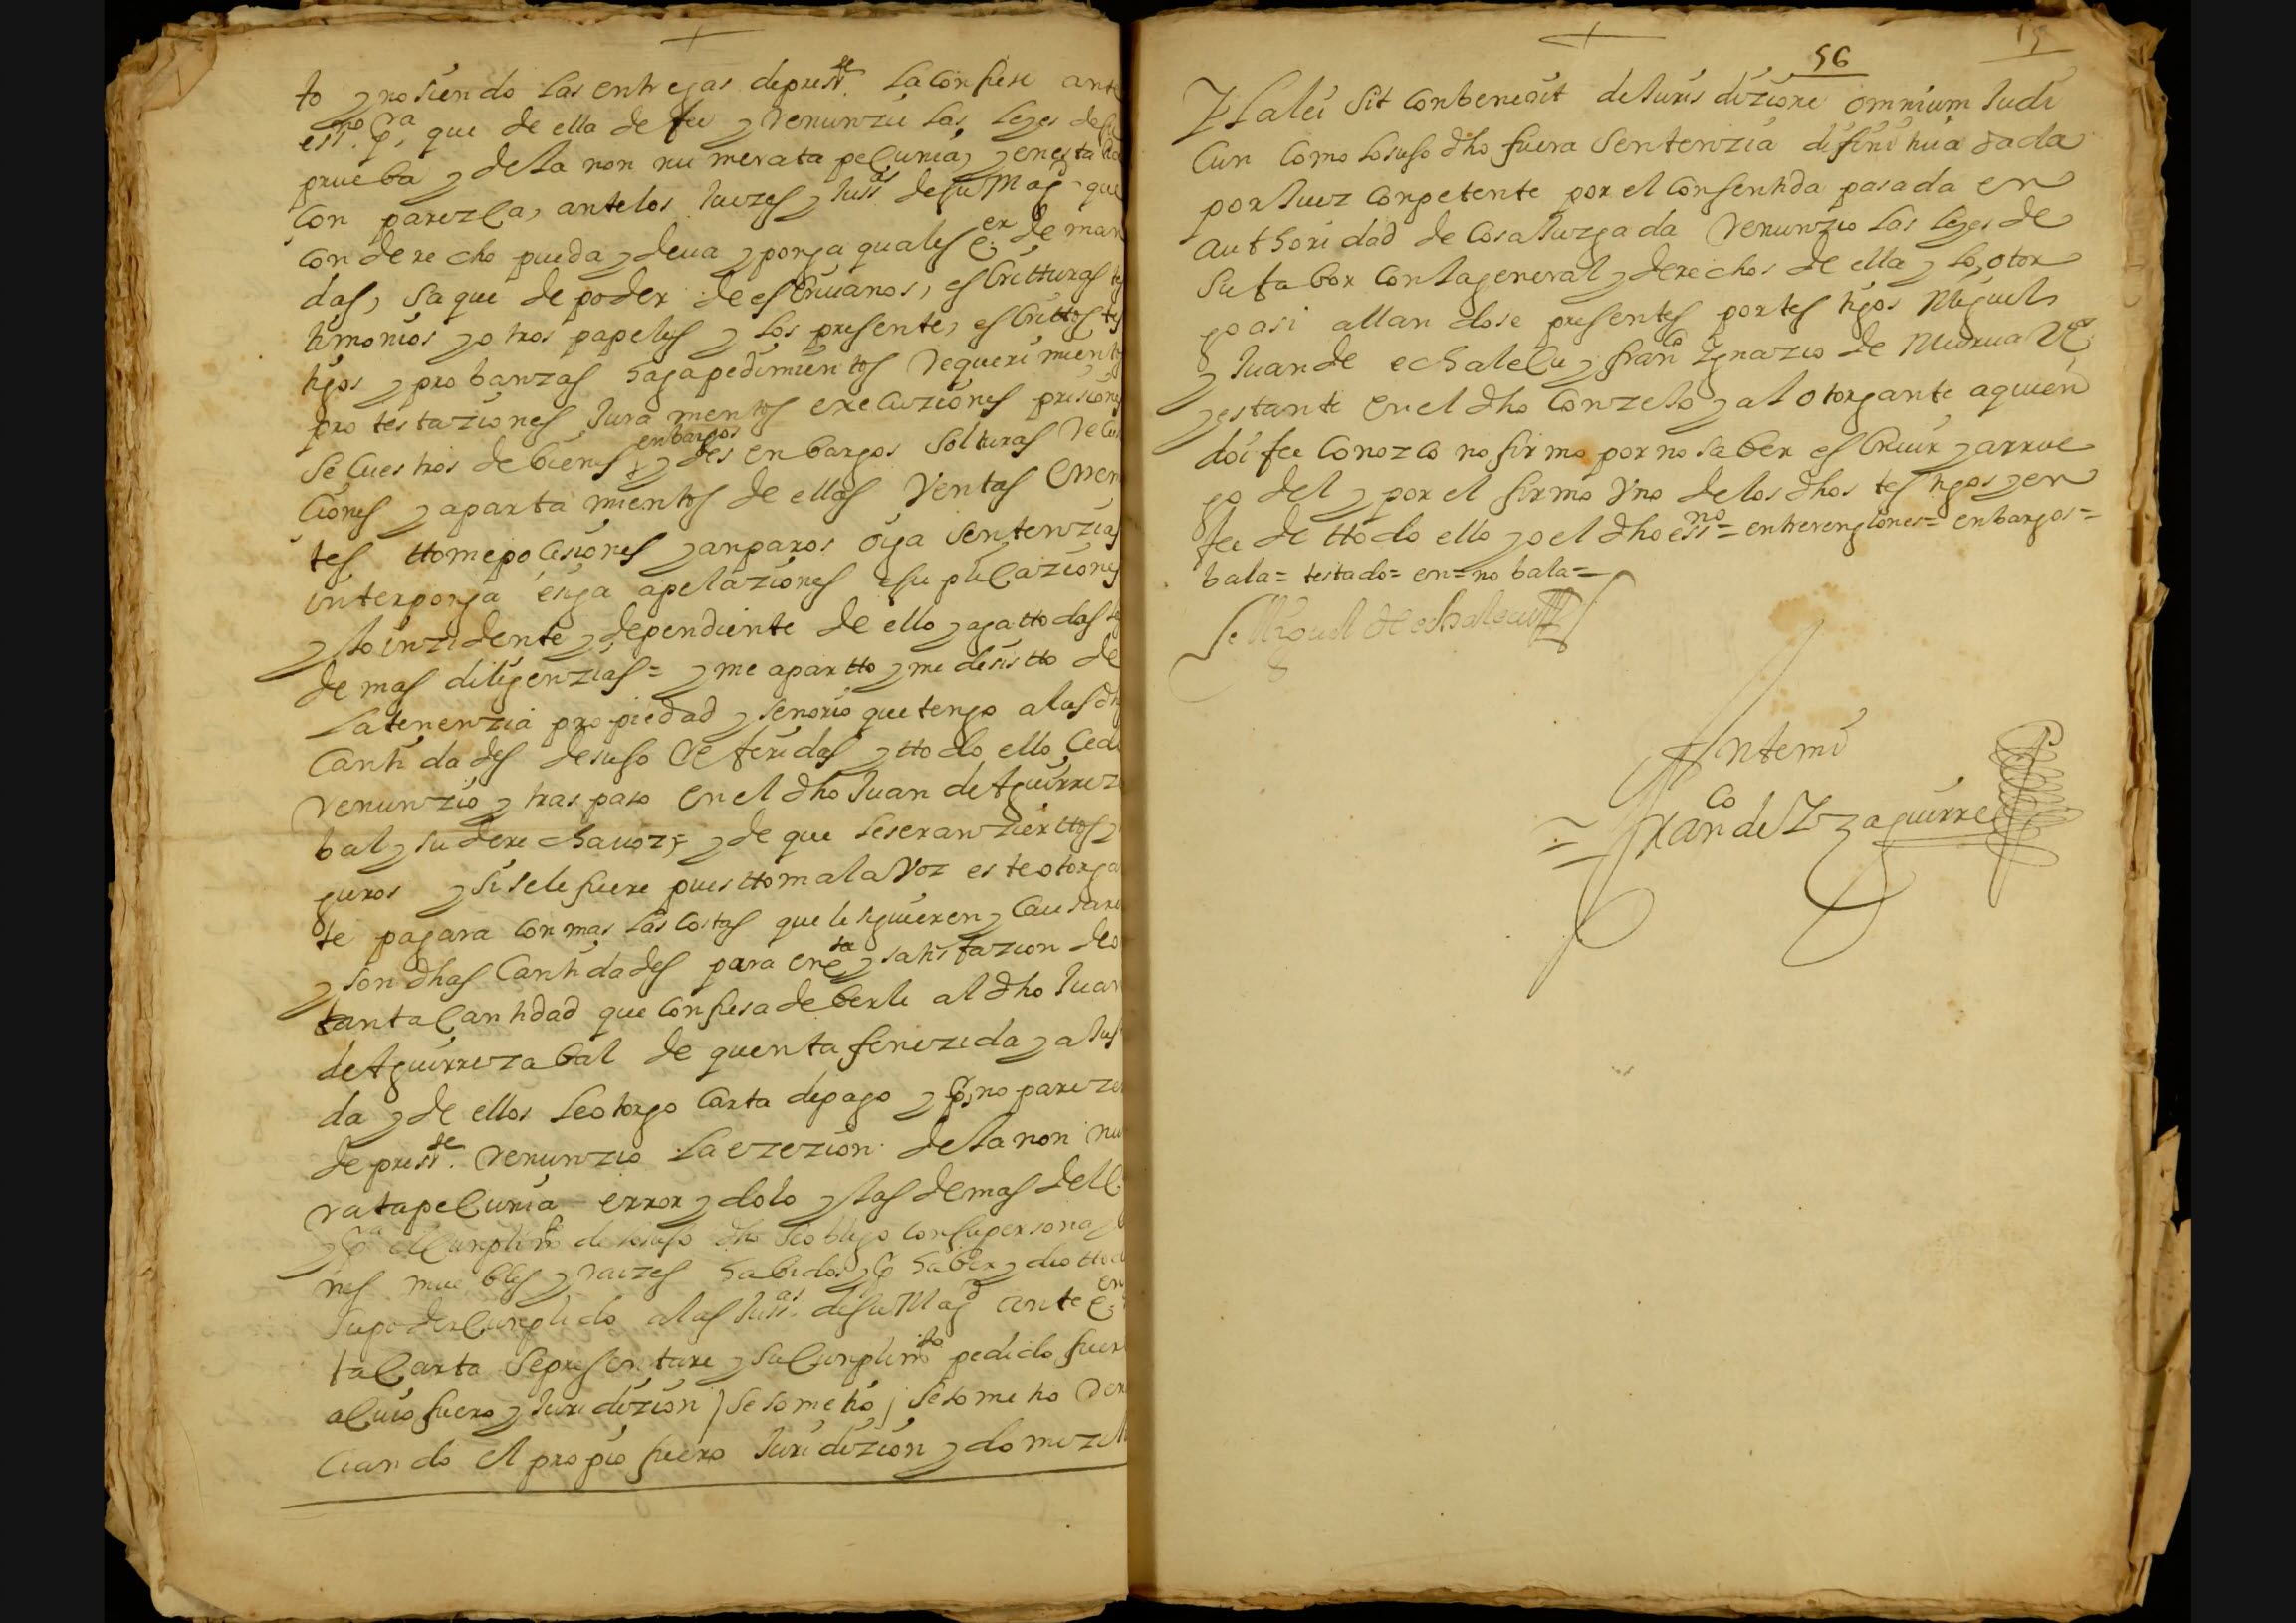 to y no siendo las entregas de pres.te la confiese ante
ess.no p.a que de ella de fee y renunzie las leyes de su
prueba y de la non numerata pecunia, y en esta
Con parezca, ante los Juezes y Jus.as de su Mag.d que
con derecho pueda y deua y ponga quales q.er deman
das, saque de poder de escriuanos, escritturas tes
timonios y otros papeles y los presente, escrittos tes
tigos y probanzas haga pedimientos requerimientos
protestaziones Juramentos execuziones prisiones
Secuestros de bienes enbargos y desenbargos solturas recu
ciones y apartamientos de ellas Ventas Cremen
tes ttome posesiones y anparos oiga sentenzias
interponga esiga apelaziones e suplicaziones
y lo inzidente y dependiente de ello y aga ttodas las
demas diligenzias = y me apartto y me desistto de
la tenenzia propiedad y senorio que tengo a las dh
Cantidades desuso referidas y ttodo ello Cedo
renunzio y traspaso en el dho Juan de Aguirreza
bal y su derecha uoz, = y de que le seran ziertos y
guros y si se le fuere puestto mala Voz este otorgan
te pagara con mas las costas que le siguieren y Causare
y son dhas Cantidades para en q.ta y satisfazion de o
tanta Cantidad que confiesa deberle al dho Juan
de Aguirrezabal de quenta fenezida y a Jus
da y de ellos le otorgo Carta de pago y p.r no parezer
de pres.te renunzio la ezezion de la non nu
rata pecunia error y dolo y las demas del C
y p.a el Cunplim.to de lo suso dho se obligo con su persona y
nes muebles y raizes habidos y p haber y dio ttodo
su poder Cunplido a las Jus.as de su Mag.d ante q.en
ta Carta se presentare y su Cunplim.to pedido fuere
a Cuio fuero y Juridizion se sometio j se sometio ren
ciando el propio fuero Juridizion y domizili
56
Y la lei sit conbenerit de Jurisdizione omnium Judi
Cun como lo suso dho fuera Sentenzia difinitiua dada
por Juez conpetente por el consentida pasada en
authoridad de Cosa Juzgada renunzio las leyes de
su fabor con la general y derechos de ella y lo otor
go asi allandose presentes por testigos Miguel
y Juan de echalecu y fran.co Ygnazio de Murua V.os
y estante en el dho Conzejo y al otorgante a quien
doi fee Conozco no firmo por no saber escriuir y a rrue
go del y por el firmo Vno de los dhos testigos y en
fee de ttodo ello yo el dho ess.no = entrerenglones = enbargos =
bala = testado = en = no bala =
Miguel de echalecu
Antemi
Fran.co de Yzaguirre